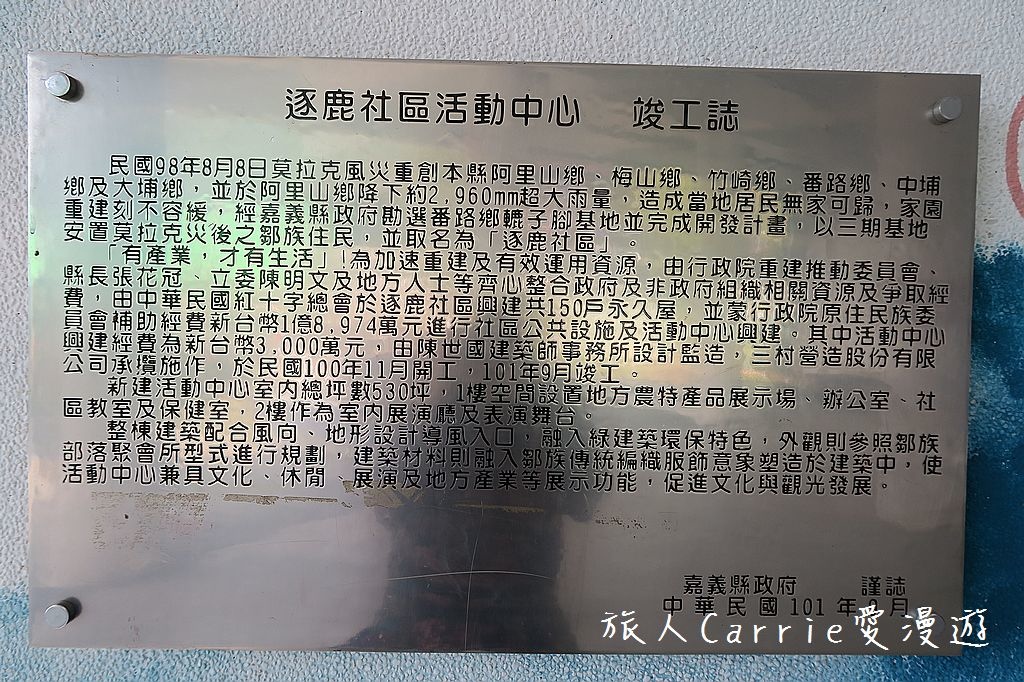 逐鹿社區活動中心 竣工誌
民國98年8月8日莫拉克風災重創本縣阿里山鄉、梅山鄉、竹崎鄉、番路鄉、中埔
鄉及大埔鄉，並於阿里山鄉降下約2,960mm超大雨量，造成當地居民無家可歸，家園
重建刻不容緩，經嘉義縣政府勘選番路鄉轆子腳基地並完成開發計畫，以三期基地
安置莫拉克災後之鄒族住民，並取名為「逐鹿社區」。
「有產業，才有生活」!為加速重建及有效運用資源，由行政院重建推動委員會、
縣長張花冠、立委陳明文及地方人士等齊心整合政府及非政府組織相關資源及爭取經
費，由中華民國紅十字總會於逐鹿社區興建共150戶永久屋，並蒙行政院原住民族委
員會補助經費新台幣1億8,974萬元進行社區公共設施及活動中心興建。其中活動中心
興建經費為新台幣3,000萬元，由陳世國建築師事務所設計監造，三村營造股份有限
公司承攬施作，於民國100年11月開工，101年9月竣工。
新建活動中心室內總坪數530坪，1樓空間設置地方農特產品展示場、辦公室、社
區教室及保健室，2樓作為室內展演廳及表演舞台。
整棟建築配合風向、地形設計導風入口，融入綠建築環保特色，外觀則參照鄒族
部落聚會所型式進行規劃，建築材料則融入鄒族傳統編織服飾意象塑造於建築中，使
活動中心兼具文化、休閒 展演及地方產業等展示功能，促進文化與觀光發展。
嘉義縣政府 謹誌
中華民國101年 月
旅人Carrie愛漫遊